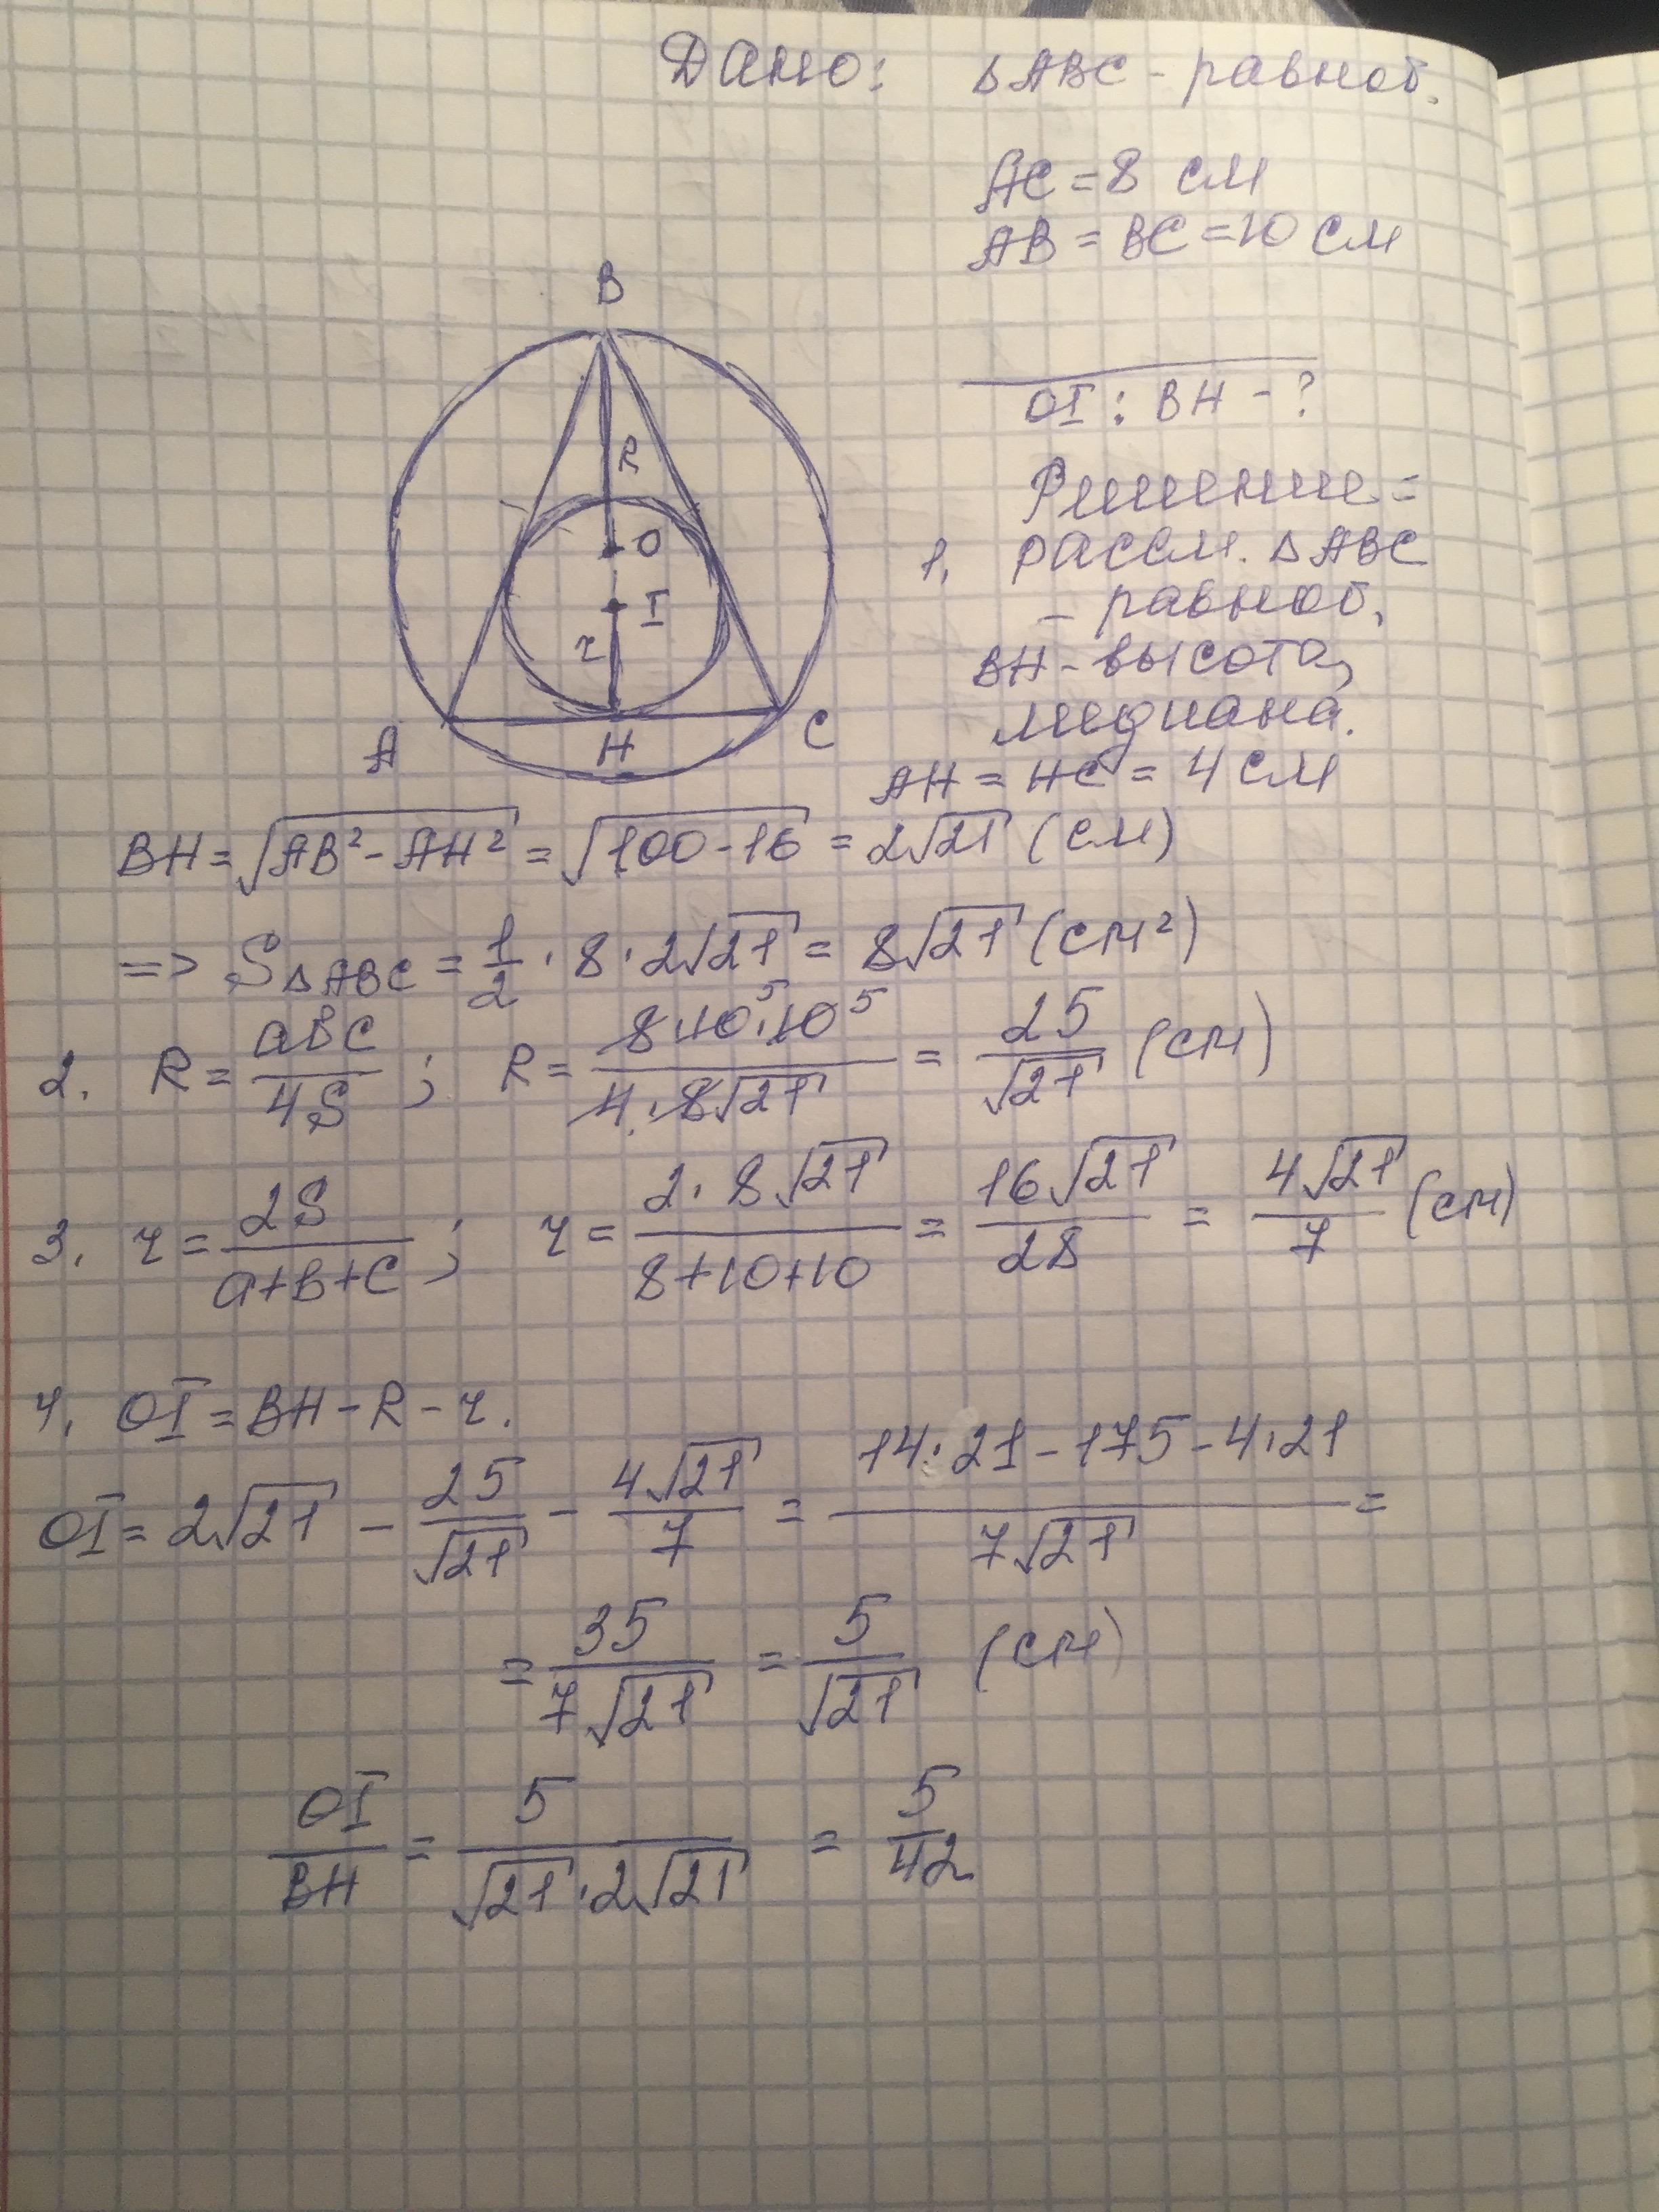 Дано: △ABC - равноб.
AC = 8 см
AB = BC = 10 см
OI : BH - ?
B
R
O
I
r
A
H
C
Решение:
1. рассм. △ABC
- равноб,
BH - высота,
медиана.
AH = HC = 4 см
BH = √(AB² - AH²) = √(100 - 16) = 2√21 (см)
=> S△ABC = 1/2 · 8 · 2√21 = 8√21 (см²)
2. R = abc/4S ; R = (8·10⁵·10⁵)/(4·8√21) = 25/√21 (см)
3. r = 2S/(a+b+c) ; r = (2·8√21)/(8+10+10) = 16√21/28 = 4√21/7 (см)
4. OI = BH - R - r.
OI = 2√21 - 25/√21 - 4√21/7 = (14·21 - 175 - 4·21)/(7√21) =
= 35/(7√21) = 5/√21 (см)
OI/BH = 5/(√21·2√21) = 5/42